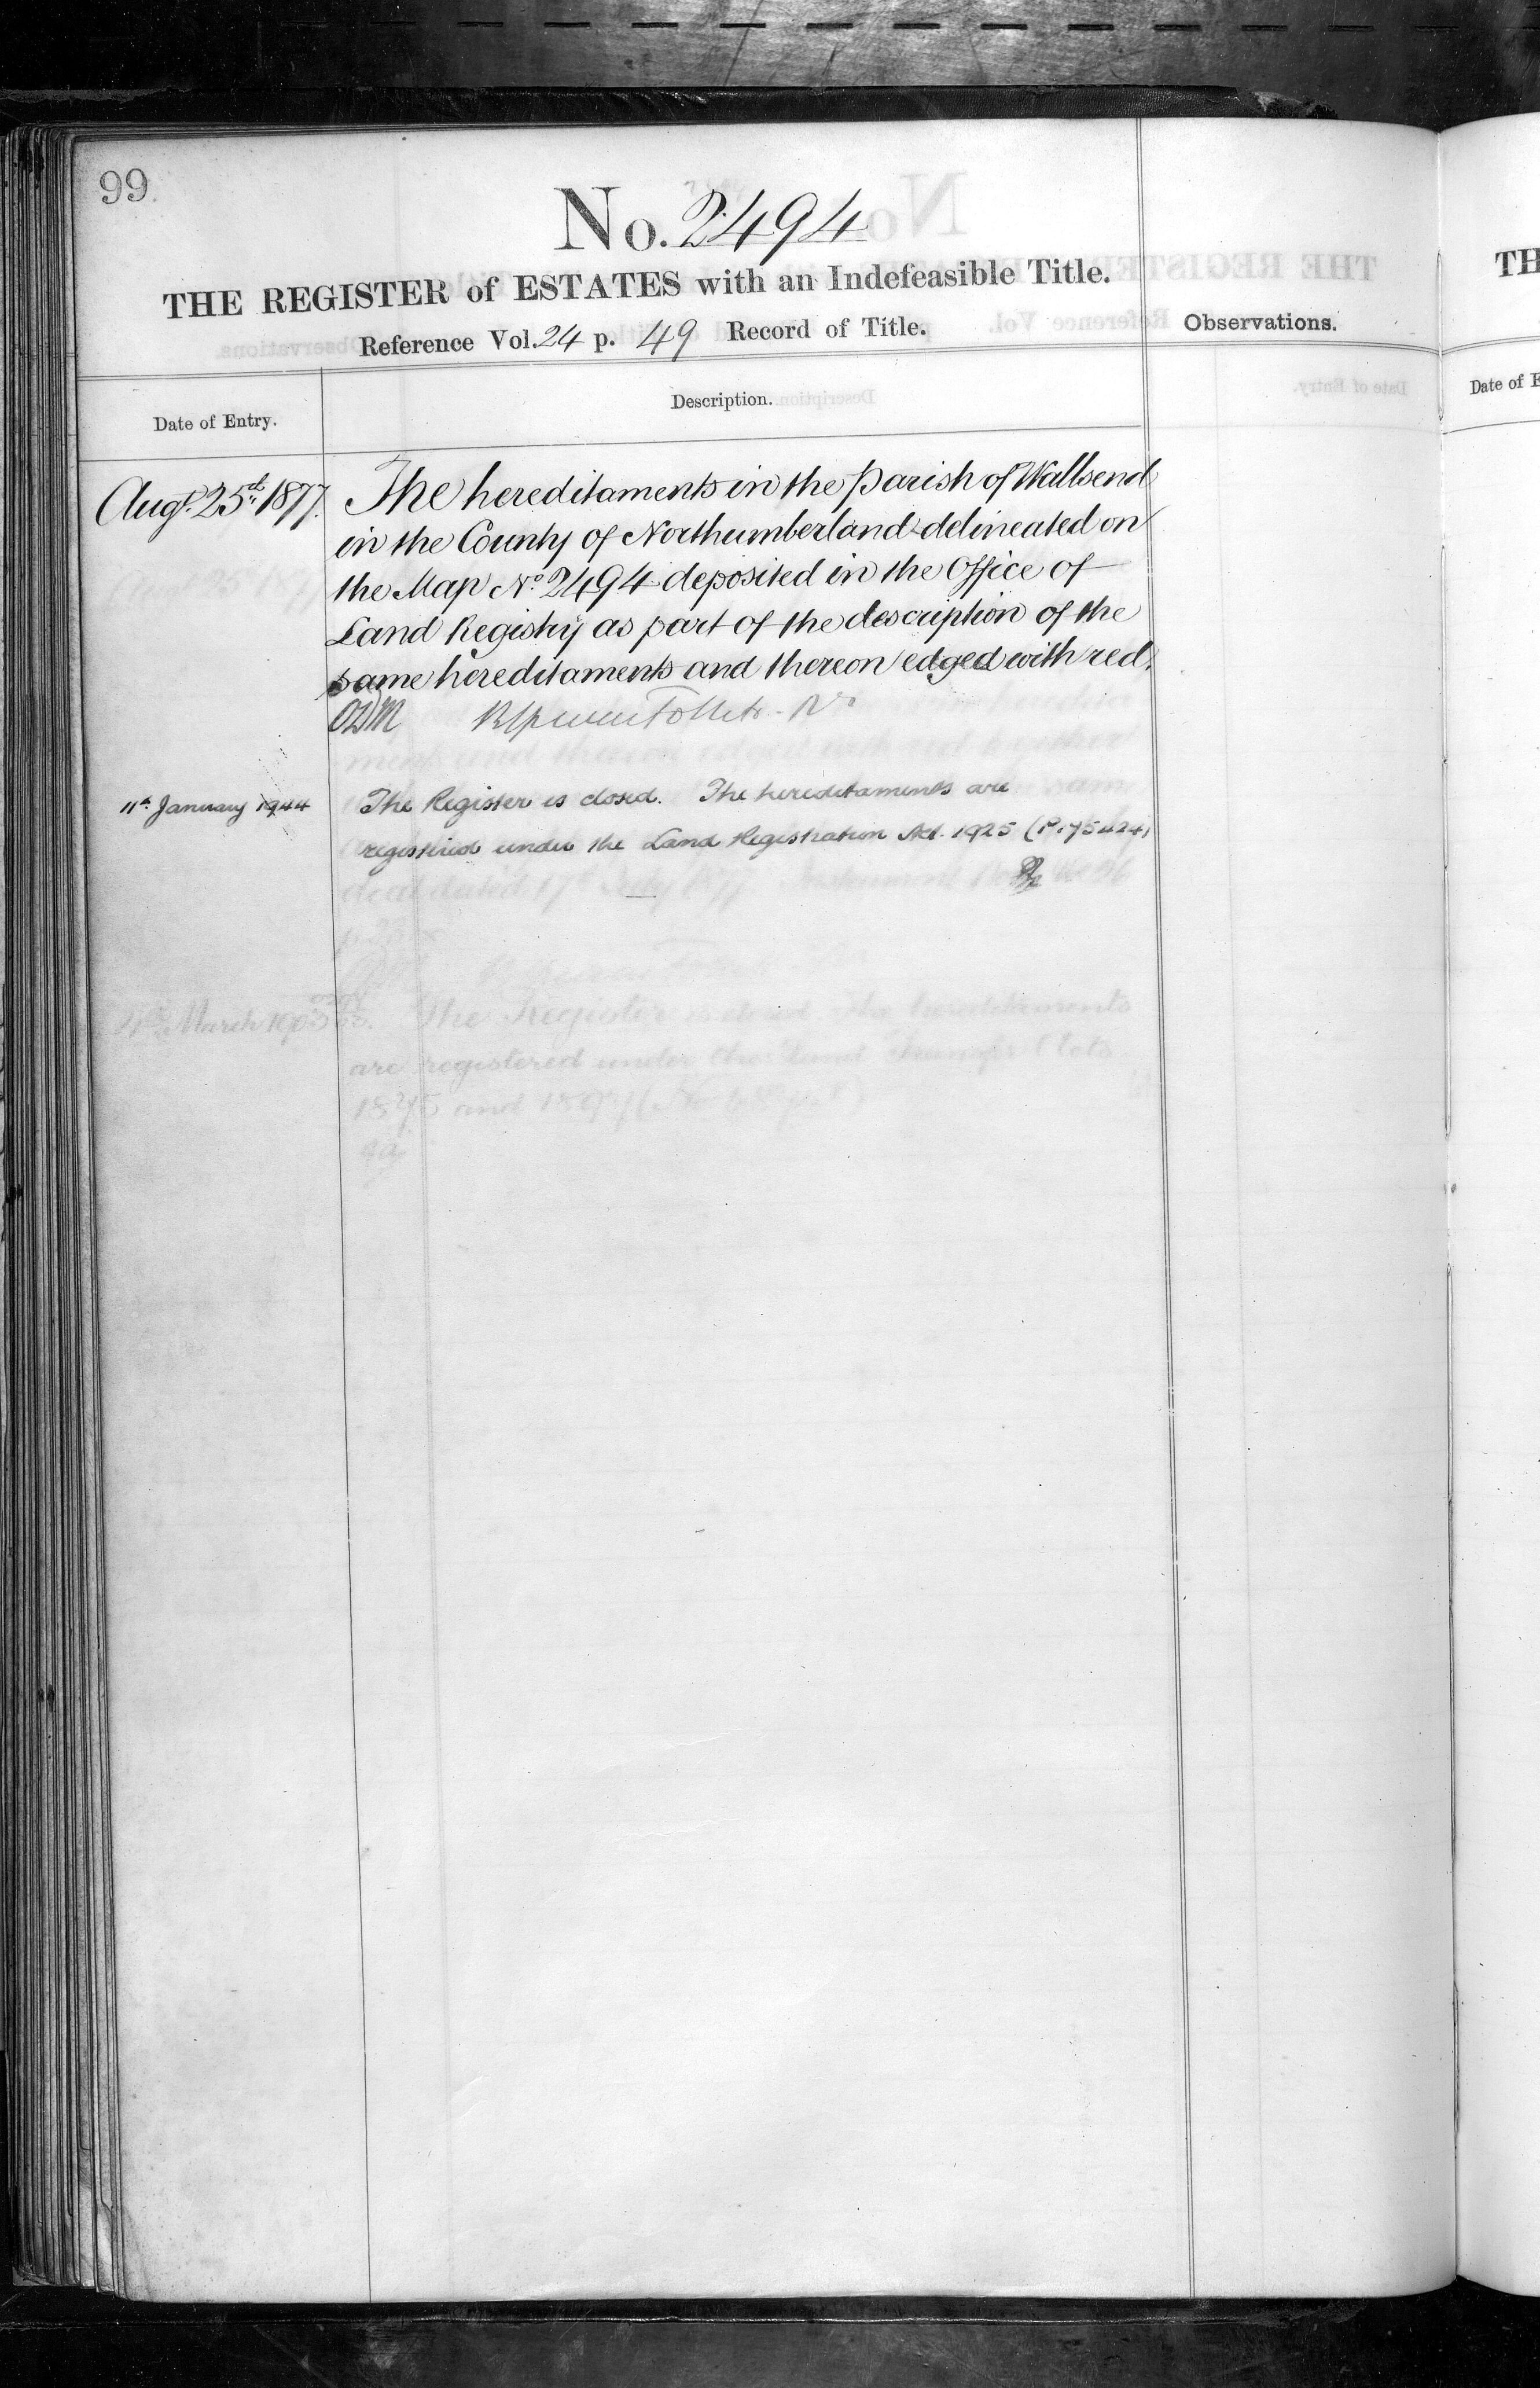 99.
No. 2494
THE REGISTER of ESTATES with an Indefeasible Title.
Reference Vol. 24 p. 49 Record of Title.
Observations.
Date of Entry.
Description.
Augt. 25th 1877. The hereditaments in the Parish of Wallsend
in the County of Northumberland delineated on
the Map No. 2494 deposited in the Office of
Land Registry as part of the description of the
same hereditaments and thereon edged with red.
11th January 1944 The Register is closed. The hereditaments are
registered under the Land Registration Act. 1925 (P. 75424)
March
The Register is closed The hereditaments
are registered under the Land Transfer
1875 and 1897
TH
Date of E